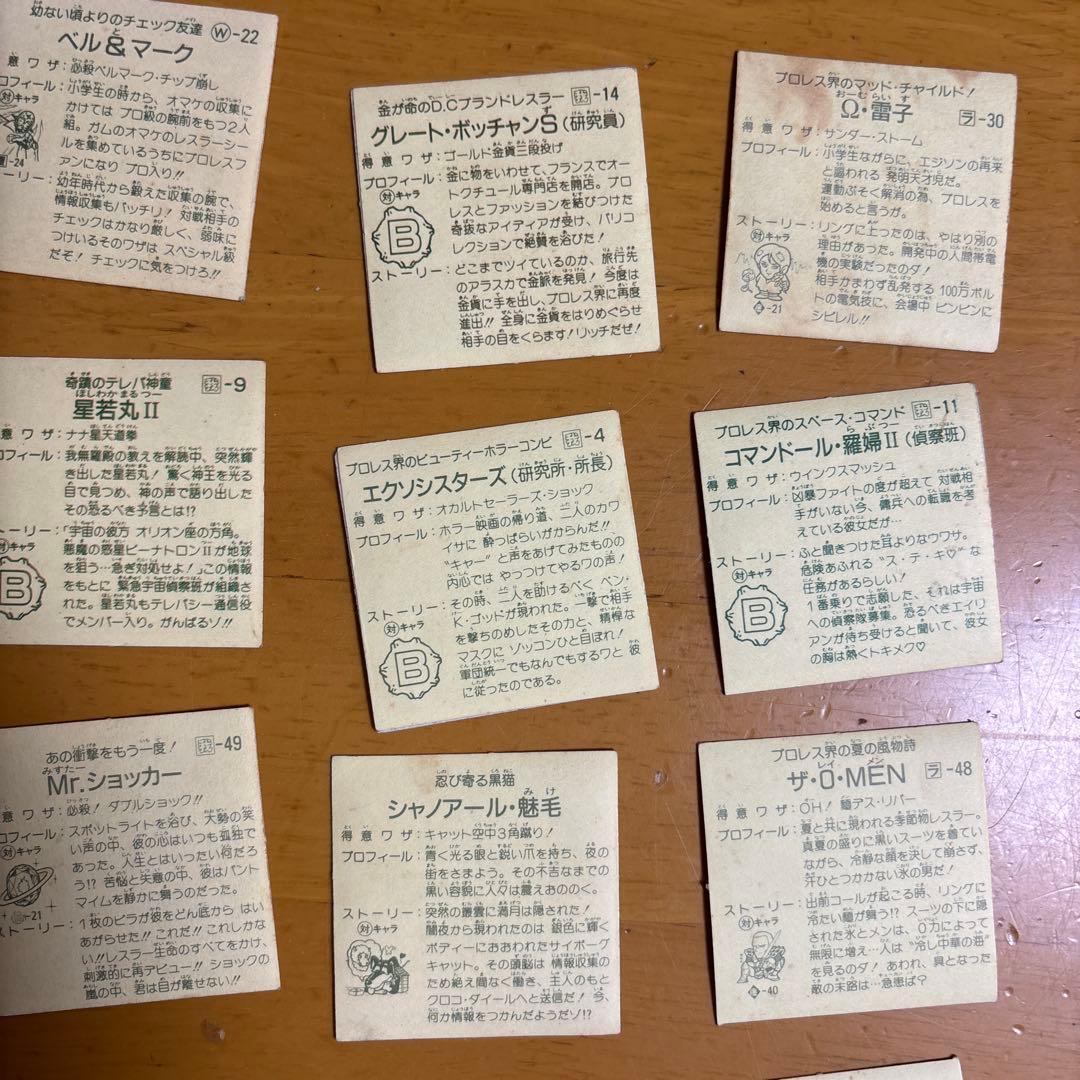 幼ない頃よりのチェック友達 W-22
ベル&マーク
意ワザ:必殺ベルマーク・チップ崩し
ロフィール:小学生の時から、オマケの収集に
かけては プロ級の腕前をもつ2人
組。ガムのオマケのレスラーシー
ルを集めているうちにプロレスフ
ァンになり プロ入り!!
対キャラ
-24
トーリー:幼年時代から鍛えた収集の腕で、
情報収集もバッチリ! 対戦相手の
チェックはかなり厳しく、弱味に
つけいるそのワザは スペシャル級
だぞ! チェックに気をつけろ!!
金が命のD.Cブランドレスラー -14
グレート・ボッチャンS(研究員)
得意ワザ:ゴールド金貨三段投げ
プロフィール:金に物をいわせて、フランスでオー
トクチュール専門店を開店。プロ
レスとファッションを結びつけた
奇抜なアイディアが受け、パリコ
レクションで絶賛を浴びた!
対キャラ
B
ストーリー:どこまでツイているのか、旅行先
のアラスカで金脈を発見! 今度は
金貨に手を出し、プロレス界に再度
進出!! 全身に金貨をはりめぐらせ
相手の目をくらます! リッチだぜ!
プロレス界のマッド・チャイルド!
おーむらいす
Ω・雷子 ラ-30
得意ワザ:サンダー・ストーム
プロフィール:小学生ながらに、エジソンの再来
と謳われる 発明天才児だ。
運動ぶそく解消の為、プロレスを
始めると言うが。
ストーリー:リングに上ったのは、やはり別の
理由があった。開発中の人間帯電
機の実験だったのダ!
相手かまわず乱発する 100万ボル
トの電気技に、会場中 ビンビンに
シビレル!!
対キャラ
-21
奇蹟のテレパ神童 -9
ほしわかまるつー
星若丸II
意ワザ:ナナ星天道拳
ロフィール:我無羅殿の教えを解読中、突然輝
き出した星若丸! 驚く神王を光る
目で見つめ、神の声で語り出した
その恐るべき予言とは!?
トーリー:「宇宙の彼方 オリオン座の方角。
悪魔の惑星ビーナトロンIIが地球
を狙う…急ぎ対処せよ!」この情報
をもとに 緊急宇宙偵察班が組織さ
れた。星若丸もテレパシー通信役
でメンバー入り。がんばるゾ!!
対キャラ
B
プロレス界のビューティーホラーコンビ -4
エクソシスターズ(研究所・所長)
得意ワザ:オカルトセーラーズ・ショック
プロフィール:ホラー映画の帰り道、二人のカワ
イサに 酔っぱらいがからんだ!!
“キャー”と声をあげてみたものの
内心では やっつけてやるワの声!
ストーリー:その時、二人を助けるべく ペン・
K・ゴッドが現われた。一撃で相手
を撃ちのめしたその力と、精悍な
マスクに ゾッコンひと目ぼれ!
軍団統一でもなんでもするワと 彼
に従ったのである。
対キャラ
B
プロレス界のスペース・コマンド -11
らぶつー
コマンドール・羅婦II(偵察班)
得意ワザ:ウインクスマッシュ
プロフィール:凶暴ファイトの度が超えて 対戦相
手がいない今、傭兵への転職を考
えている彼女だが…
ストーリー:ふと聞きつけた耳よりなウワサ。
危険あふれる“ス・テ・キ♡”な
任務があるらしい!
1番乗りで志願した、それは宇宙
への偵察隊募集。恐るべきエイリ
アンが待ち受けると聞いて、彼女
の胸は熱くトキメク♡
対キャラ
B
あの衝撃をもう一度! -49
みすたー
Mr.ショッカー
意ワザ:必殺! ダブルショック!!
ロフィール:スポットライトを浴び、大勢の笑
い声の中、彼の心はいつも孤独で
あった。人生とはいったい何だろ
う!? 苦悩と失意の中、彼はパント
マイムを静かに舞うのだった。
対キャラ
-21
ストーリー:1枚のビラが彼をどん底から はい
あがらせた!! これだ!! これしかな
い!!レスラー生命のすべてをかけ、
刺激的に再デビュー!! ショックの
嵐の中、君は目が離せない!!
忍び寄る黒猫
シャノアール・魅毛
得意ワザ:キャット空中3角蹴り!
プロフィール:青く光る眼と鋭い爪を持ち、夜の
街をさまよう。その不吉なまでの
黒い容貌に人々は震えおののく。
ストーリー:突然の叢雲に満月は隠された!
闇夜から現われたのは 銀色に輝く
ボディーにおおわれたサイボーグ
キャット。その頭脳は 情報収集の
ため絶え間なく働き、主人のもと
クロコ・ダイールへと送信だ! 今、
何か情報をつかんだようだゾ!?
対キャラ
プロレス界の夏の風物詩
レイ メン
ザ・O・MEN ラ-48
得意ワザ:OH! 麺デス・リバー
プロフィール:夏と共に現われる季節物レスラー。
真夏の盛りに黒いスーツを着てい
ながら、冷静な顔を決して崩さず、
汗ひとつかかない氷の男だ!
ストーリー:出前コールが起こる時、リングに
冷たい麺が舞う!? スーツの下に隠
された氷とメンは、0カによって
無限に増え…人は“冷し中華の海”
を見るのダ! あわれ、具となった
敵の末路は…急患ば?
対キャラ
-40